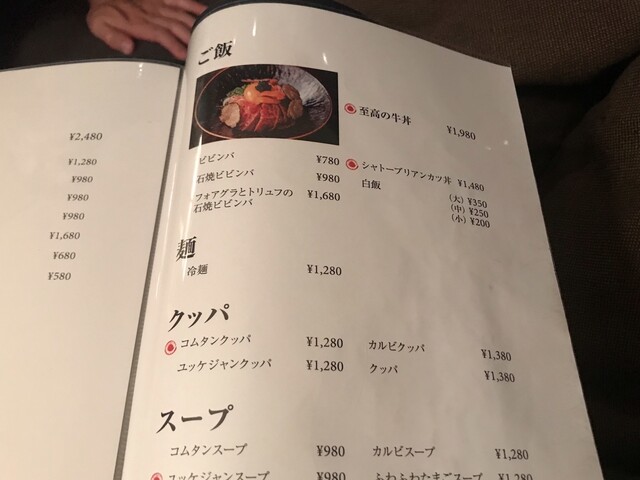 ¥2,480
¥1,280
¥980
¥980
¥980
¥1,680
¥680
¥580
ご飯
至高の牛丼 ¥1,980
ビビンバ ¥780
石焼ビビンバ ¥980
フォアグラとトリュフの
石焼ビビンバ ¥1,680
シャトーブリアンカツ丼 ¥1,480
白飯 (大) ¥350
(中) ¥250
(小) ¥200
麺
冷麺 ¥1,280
クッパ
コムタンクッパ ¥1,280
ユッケジャンクッパ ¥1,280
カルビクッパ ¥1,380
クッパ ¥1,380
スープ
コムタンスープ ¥980
ユッケジャンスープ ¥980
カルビスープ ¥1,280
ふわふわたまごスープ ¥1,280